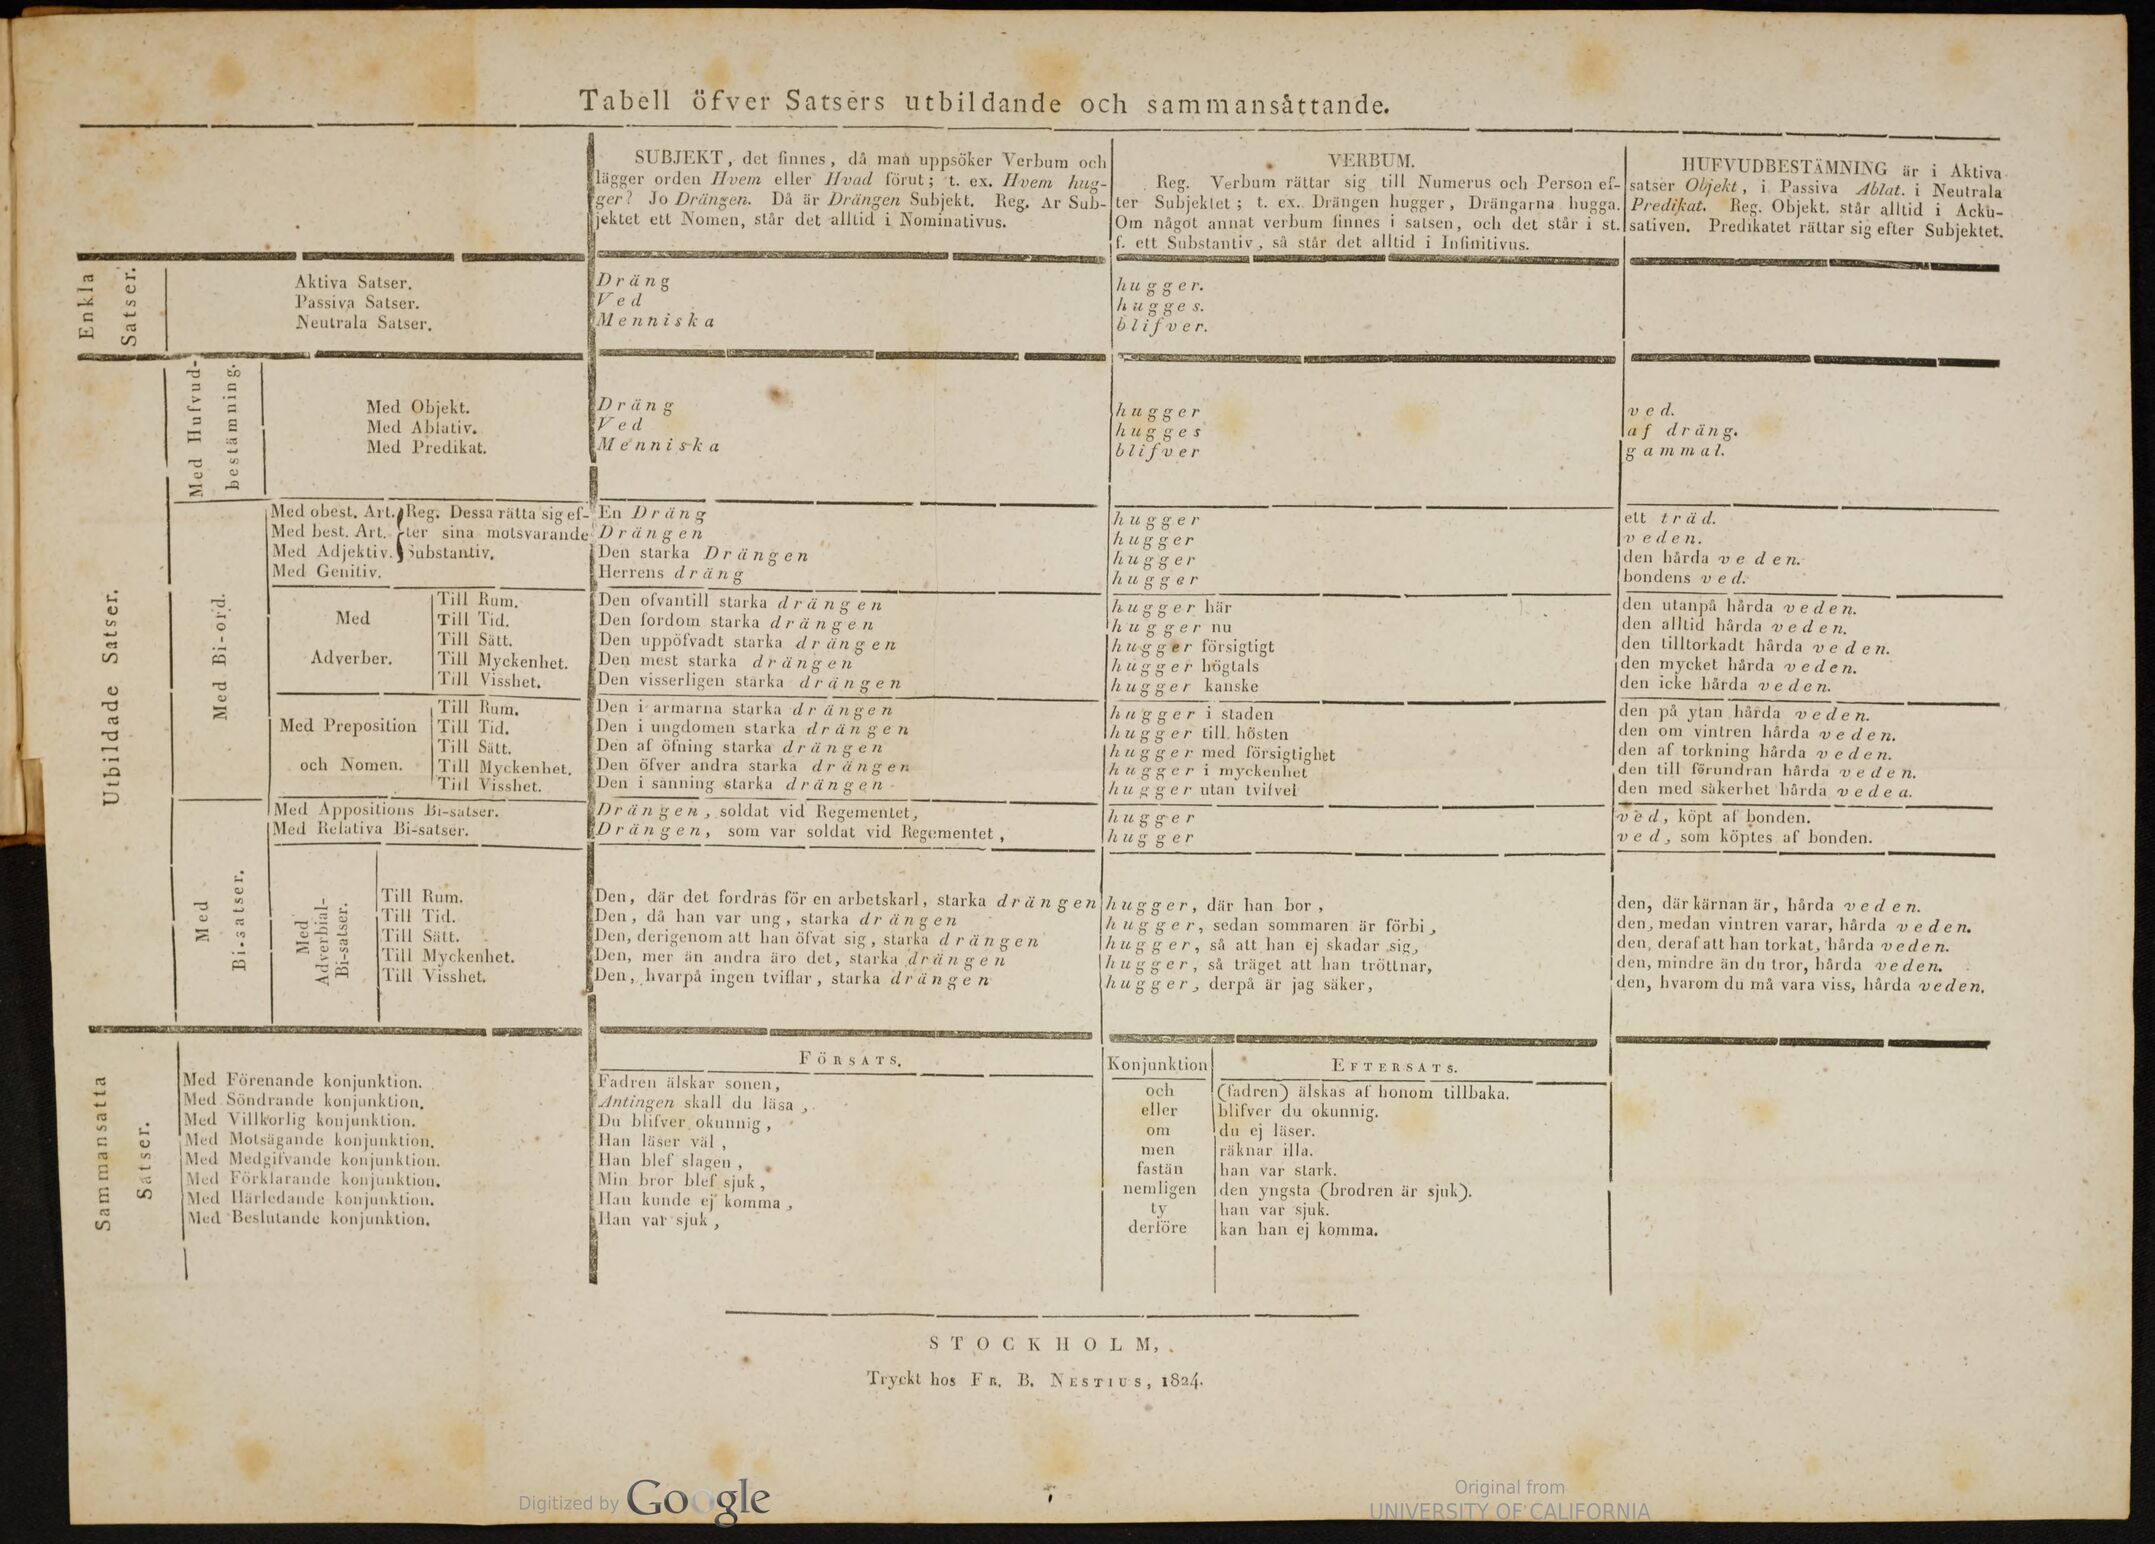 Tabell öfver Satsers utbildande och sammansättande.
SUBJEKT, det finnes, då man uppsöker Verbum och
lägger orden Hvem eller Hvad förut; t. ex. Hvem hug-
ger? Jo Drängen. Då är Drängen Subjekt. Reg. Ar Sub-
jektet ett Nomen, står det alltid i Nominativus.
VERBUM.
Reg. Verbum rättar sig till Numerus och Person ef-
ter Subjektet; t. ex. Drängen hugger, Drängarna hugga.
Om något annat verbum finnes i satsen, och det står i st.
f. ett Substantiv, så står det alltid i Infinitivus.
HUFVUDBESTÄMNING är i Aktiva
satser Objekt, i Passiva Ablat. i Neutrala
Predikat. Reg. Objekt. står alltid i Acku-
sativen. Predikatet rättar sig efter Subjektet.
Enkla
Satser.
Aktiva Satser. Dräng hugger.
Passiva Satser. Ved hugges.
Neutrala Satser. Menniska blifver.
Utbildade Satser.
Med Hufvud-
bestämning.
Med Objekt. Dräng hugger ved.
Med Ablativ. Ved hugges af dräng.
Med Predikat. Menniska blifver gammal.
Med Bi-ord.
Med obest. Art. Reg. Dessa rätta sig ef- En Dräng hugger ett träd.
Med best. Art. ter sina motsvarande Drängen hugger veden.
Med Adjektiv. Substantiv. Den starka Drängen hugger den hårda veden.
Med Genitiv. Herrens dräng hugger bondens ved.
Med
Adverber.
Till Rum. Den ofvantill starka drängen hugger här den utanpå hårda veden.
Till Tid. Den fordom starka drängen hugger nu den alltid hårda veden.
Till Sätt. Den uppöfvadt starka drängen hugger försigtigt den tilltorkadt hårda veden.
Till Myckenhet. Den mest starka drängen hugger högtals den mycket hårda veden.
Till Visshet. Den visserligen starka drängen hugger kanske den icke hårda veden.
Med Preposition
och Nomen.
Till Rum. Den i armarna starka drängen hugger i staden den på ytan hårda veden.
Till Tid. Den i ungdomen starka drängen hugger till hösten den om vintren hårda veden.
Till Sätt. Den af öfning starka drängen hugger med försigtighet den af torkning hårda veden.
Till Myckenhet. Den öfver andra starka drängen hugger i myckenhet den till förundran hårda veden.
Till Visshet. Den i sanning starka drängen hugger utan tvifvel den med säkerhet hårda veden.
Med
Bi-satser.
Med Appositions Bi-satser. Drängen, soldat vid Regementet, hugger ved, köpt af bonden.
Med Relativa Bi-satser. Drängen, som var soldat vid Regementet, hugger ved, som köptes af bonden.
Med
Adverbial-
Bi-satser.
Till Rum. Den, där det fordras för en arbetskarl, starka drängen hugger, där han bor, den, där kärnan är, hårda veden.
Till Tid. Den, då han var ung, starka drängen hugger, sedan sommaren är förbi, den, medan vintren varar, hårda veden.
Till Sätt. Den, derigenom att han öfvat sig, starka drängen hugger, så att han ej skadar sig, den, deraf att han torkat, hårda veden.
Till Myckenhet. Den, mer än andra äro det, starka drängen hugger, så träget att han tröttnar, den, mindre än du tror, hårda veden.
Till Visshet. Den, hvarpå ingen tviflar, starka drängen hugger, derpå är jag säker, den, hvarom du må vara viss, hårda veden.
Sammansatta
Satser.
FÖRSATS. Konjunktion EFTERSATS.
Med Förenande konjunktion. Fadren älskar sonen, och (fadren) älskas af honom tillbaka.
Med Söndrande konjunktion. Antingen skall du läsa, eller blifver du okunnig.
Med Villkorlig konjunktion. Du blifver okunnig, om du ej läser.
Med Motsägande konjunktion. Han läser väl, men räknar illa.
Med Medgifvande konjunktion. Han blef slagen, fastän han var stark.
Med Förklarande konjunktion. Min bror blef sjuk, nemligen den yngsta (brodren är sjuk).
Med Härledande konjunktion. Han kunde ej komma, ty han var sjuk.
Med Beslutande konjunktion. Han var sjuk, derföre kan han ej komma.
STOCKHOLM,
Tryckt hos FR. B. NESTIUS, 1824.
Digitized by Google
Original from
UNIVERSITY OF CALIFORNIA